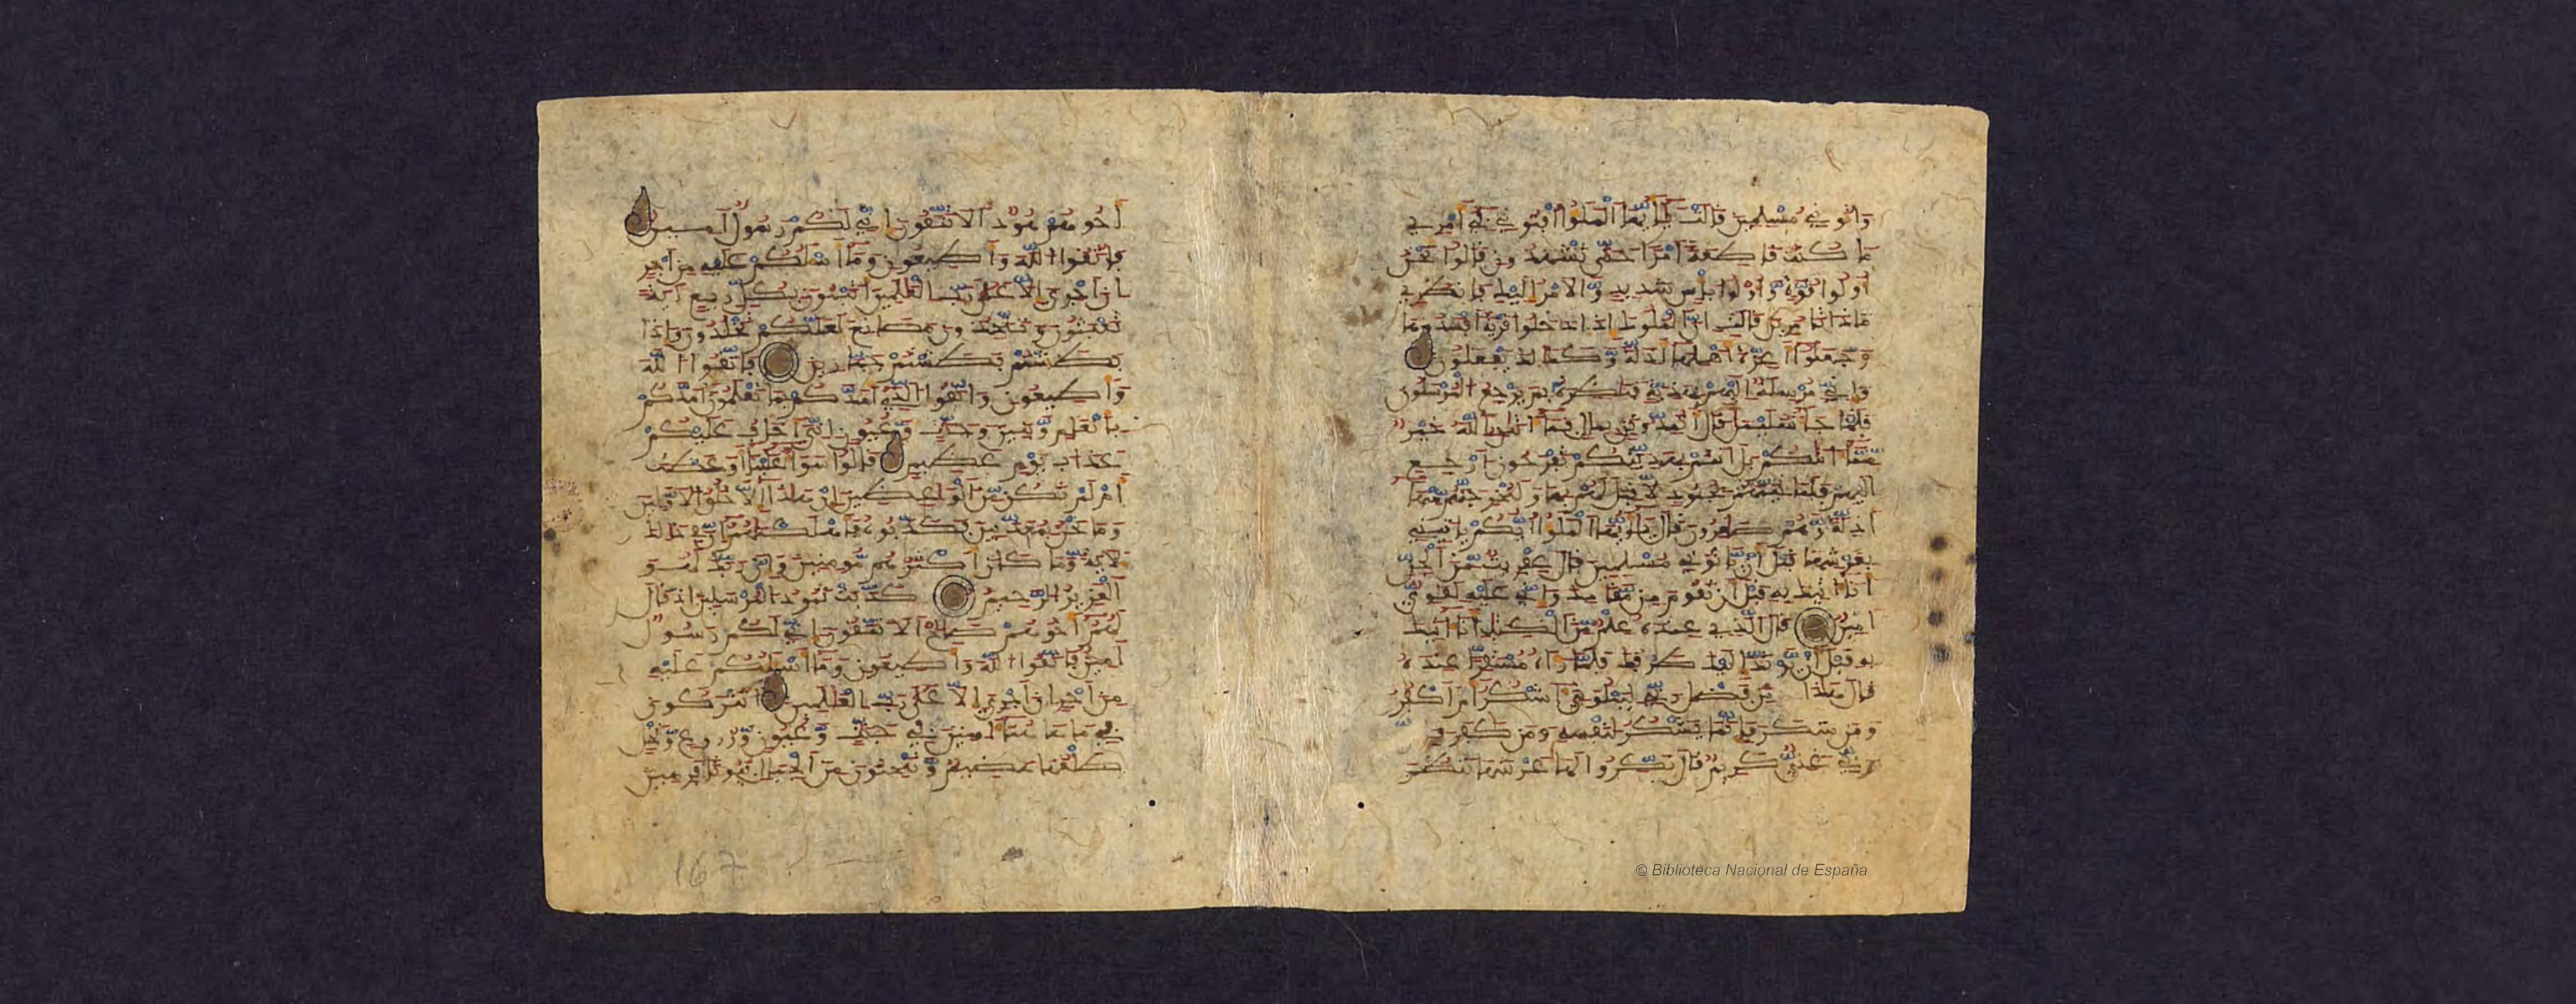 وَاتُونِي مُسْلِمِينَ قَالَتْ يَٰأَيُّهَا ٱلْمَلَؤُا أَفْتُونِي فِي أَمْرِي
مَا كُنتُ قَاطِعَةً أَمْرًا حَتَّىٰ تَشْهَدُونِ قَالُوا نَحْنُ
أُولُوا قُوَّةٍ وَّأُولُوا بَأْسٍ شَدِيدٍ وَّالْأَمْرُ إِلَيْكِ فَانظُرِي
مَاذَا تَأْمُرِينَ قَالَتِ إِنَّ ٱلْمُلُوكَ إِذَا دَخَلُوا قَرْيَةً أَفْسَدُوهَا
وَجَعَلُوا أَعِزَّةَ أَهْلِهَا أَذِلَّةً وَّكَذَٰلِكَ يَفْعَلُونَ
وَإِنِّي مُرْسِلَةٌ إِلَيْهِم بِهَدِيَّةٍ فَنَٰظِرَةٌ بِمَ يَرْجِعُ ٱلْمُرْسَلُونَ
فَلَمَّا جَآءَ سُلَيْمَٰنَ قَالَ أَتُمِدُّونَنِ بِمَالٍ فَمَآ ءَاتَٰنِيَ ٱللَّهُ خَيْرٌ
مِّمَّآ ءَاتَٰكُم بَلْ أَنتُم بِهَدِيَّتِكُمْ تَفْرَحُونَ ٱرْجِعِ
إِلَيْهِمْ فَلَنَأْتِيَنَّهُم بِجُنُودٍ لَّا قِبَلَ لَهُم بِهَا وَلَنُخْرِجَنَّهُم مِّنْهَآ
أَذِلَّةً وَّهُمْ صَٰغِرُونَ قَالَ يَٰأَيُّهَا ٱلْمَلَؤُا أَيُّكُمْ يَأْتِينِي
بِعَرْشِهَا قَبْلَ أَن يَّأْتُونِي مُسْلِمِينَ قَالَ عِفْرِيتٌ مِّنَ ٱلْجِنِّ
أَنَا ءَاتِيكَ بِهِ قَبْلَ أَن تَقُومَ مِن مَّقَامِكَ وَإِنِّي عَلَيْهِ لَقَوِيٌّ
أَمِينٌ قَالَ ٱلَّذِي عِندَهُ عِلْمٌ مِّنَ ٱلْكِتَٰبِ أَنَا ءَاتِيكَ
بِهِ قَبْلَ أَن يَّرْتَدَّ إِلَيْكَ طَرْفُكَ فَلَمَّا رَءَاهُ مُسْتَقِرًّا عِندَهُ
قَالَ هَٰذَا مِن فَضْلِ رَبِّي لِيَبْلُوَنِيَ ءَأَشْكُرُ أَمْ أَكْفُرُ
وَمَن شَكَرَ فَإِنَّمَا يَشْكُرُ لِنَفْسِهِ وَمَن كَفَرَ فَإِنَّ
رَبِّي غَنِيٌّ كَرِيمٌ قَالَ نَكِّرُوا لَهَا عَرْشَهَا نَنظُرَ
أَخُوهُمْ هُودٌ أَلَا تَتَّقُونَ إِنِّي لَكُمْ رَسُولٌ أَمِينٌ
فَاتَّقُوا ٱللَّهَ وَأَطِيعُونِ وَمَآ أَسْـَٔلُكُمْ عَلَيْهِ مِنْ أَجْرٍ
إِنْ أَجْرِيَ إِلَّا عَلَىٰ رَبِّ ٱلْعَٰلَمِينَ أَتَبْنُونَ بِكُلِّ رِيعٍ ءَايَةً
تَعْبَثُونَ وَتَتَّخِذُونَ مَصَانِعَ لَعَلَّكُمْ تَخْلُدُونَ وَإِذَا
بَطَشْتُم بَطَشْتُمْ جَبَّارِينَ فَاتَّقُوا ٱللَّهَ
وَأَطِيعُونِ وَٱتَّقُوا ٱلَّذِي أَمَدَّكُم بِمَا تَعْلَمُونَ أَمَدَّكُم
بِأَنْعَٰمٍ وَّبَنِينَ وَجَنَّٰتٍ وَّعُيُونٍ إِنِّيَ أَخَافُ عَلَيْكُمْ
عَذَابَ يَوْمٍ عَظِيمٍ قَالُوا سَوَآءٌ عَلَيْنَآ أَوَعَظْتَ
أَمْ لَمْ تَكُن مِّنَ ٱلْوَٰعِظِينَ إِنْ هَٰذَآ إِلَّا خُلُقُ ٱلْأَوَّلِينَ
وَمَا نَحْنُ بِمُعَذَّبِينَ فَكَذَّبُوهُ فَأَهْلَكْنَٰهُمْ إِنَّ فِي ذَٰلِكَ
لَأٓيَةً وَّمَا كَانَ أَكْثَرُهُم مُّومِنِينَ وَإِنَّ رَبَّكَ لَهُوَ
ٱلْعَزِيزُ ٱلرَّحِيمُ كَذَّبَتْ ثَمُودُ ٱلْمُرْسَلِينَ إِذْ قَالَ
لَهُمْ أَخُوهُمْ صَٰلِحٌ أَلَا تَتَّقُونَ إِنِّي لَكُمْ رَسُولٌ
أَمِينٌ فَاتَّقُوا ٱللَّهَ وَأَطِيعُونِ وَمَآ أَسْـَٔلُكُمْ عَلَيْهِ
مِنْ أَجْرٍ إِنْ أَجْرِيَ إِلَّا عَلَىٰ رَبِّ ٱلْعَٰلَمِينَ أَتُتْرَكُونَ
فِي مَا هَٰهُنَآ ءَامِنِينَ فِي جَنَّٰتٍ وَّعُيُونٍ وَّزُرُوعٍ وَّنَخْلٍ
طَلْعُهَا هَضِيمٌ وَّتَنْحِتُونَ مِنَ ٱلْجِبَالِ بُيُوتًا فَرِهِينَ
167
© Biblioteca Nacional de España